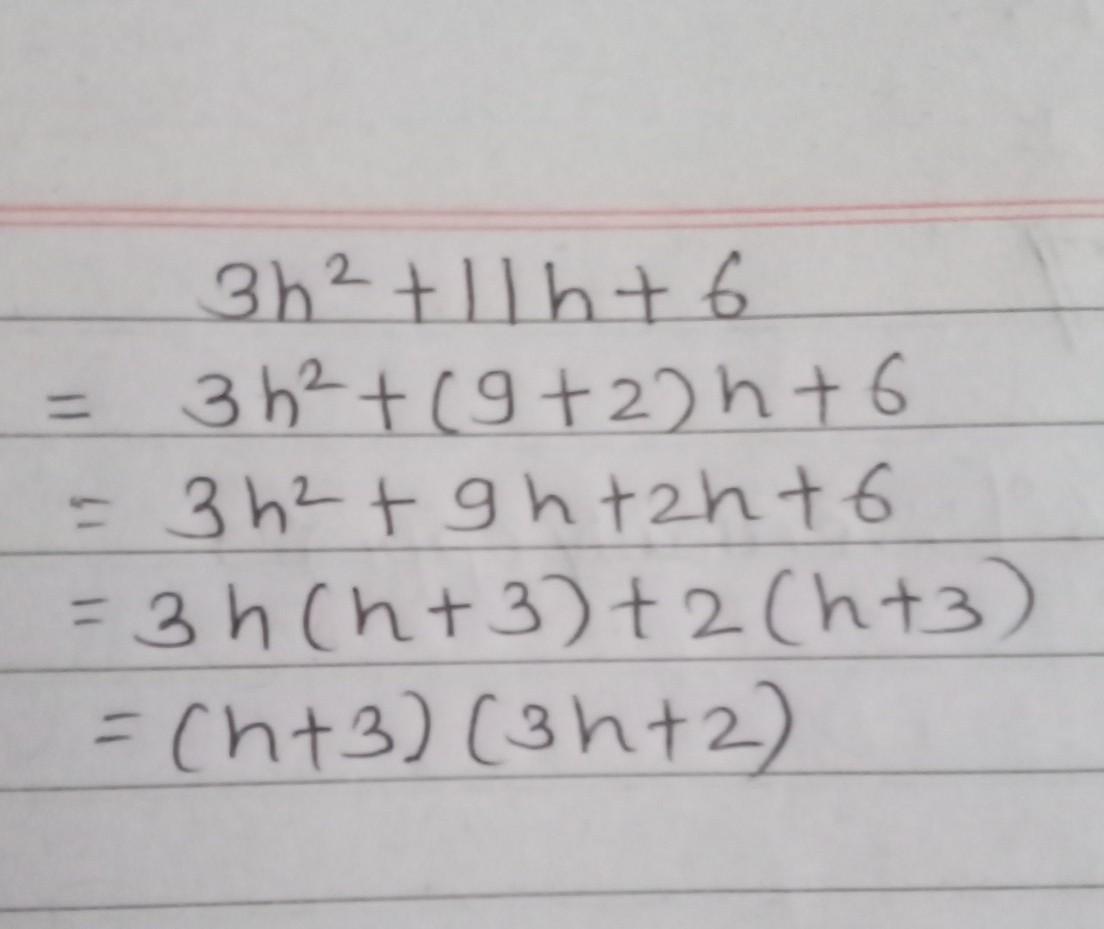 3h² + 11h + 6
= 3h² + (9 + 2)h + 6
= 3h² + 9h + 2h + 6
= 3h(h + 3) + 2(h + 3)
= (h + 3)(3h + 2)